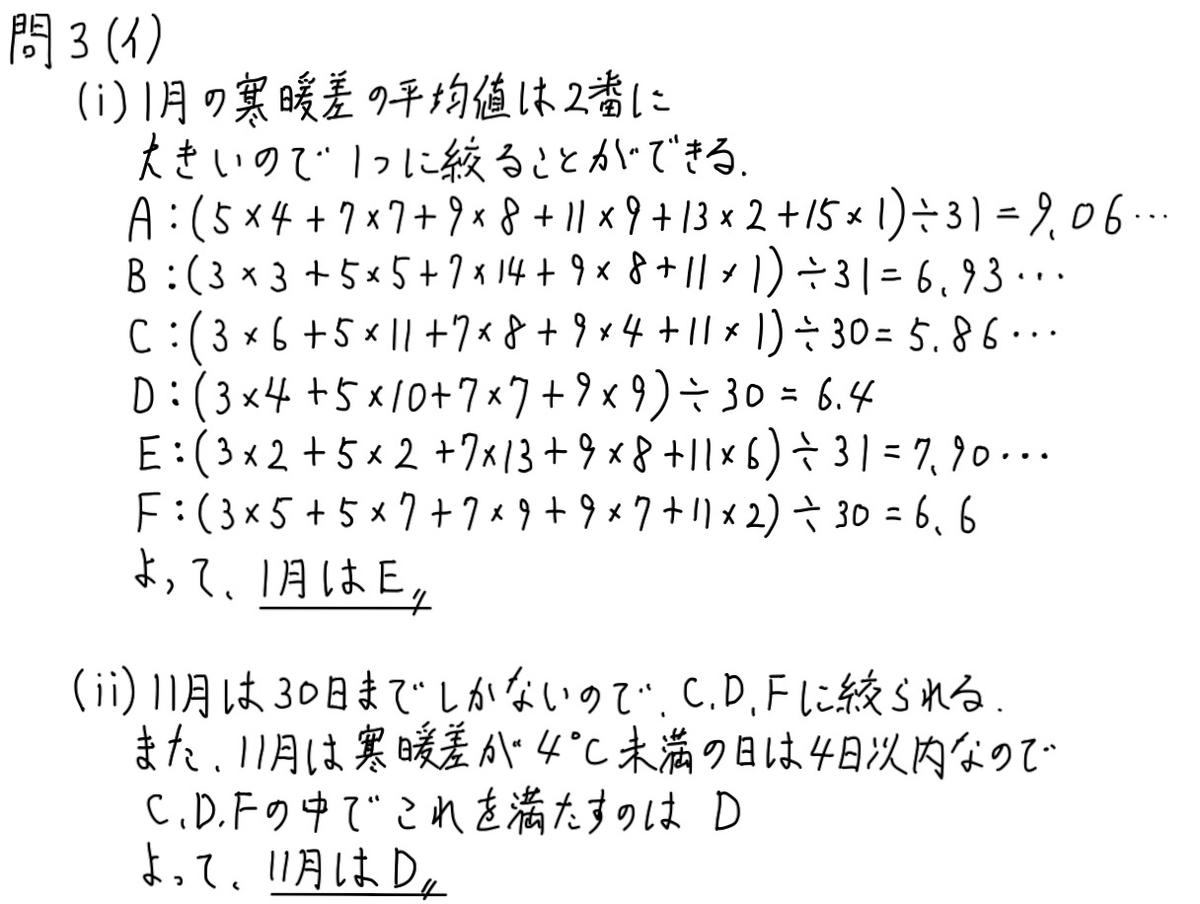 問3(イ)
(i) 1月の寒暖差の平均値は2番に
大きいので1つに絞ることができる.
A:(5×4+7×7+9×8+11×9+13×2+15×1)÷31=9.06…
B:(3×3+5×5+7×14+9×8+11×1)÷31=6.93…
C:(3×6+5×11+7×8+9×4+11×1)÷30=5.86…
D:(3×4+5×10+7×7+9×9)÷30=6.4
E:(3×2+5×2+7×13+9×8+11×6)÷31=7.90…
F:(3×5+5×7+7×9+9×7+11×2)÷30=6.6
よって、1月はE〃
(ii) 11月は30日までしかないので、C.D.Fに絞られる.
また、11月は寒暖差が4℃未満の日は4日以内なので
C.D.Fの中でこれを満たすのは D
よって、11月はD〃